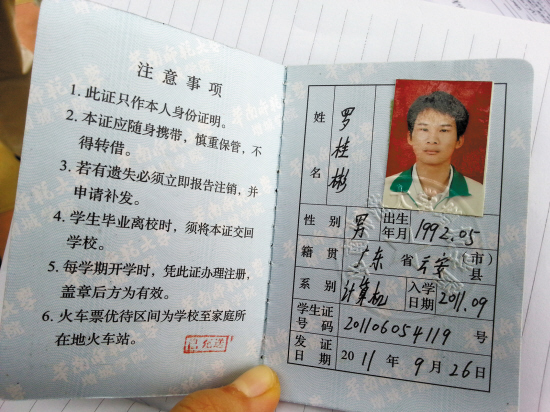 注意事项
1. 此证只作本人身份证明。
2. 本证应随身携带，慎重保管，不
得转借。
3. 若有遗失必须立即报告注销，并
申请补发。
4. 学生毕业离校时，须将本证交回
学校。
5. 每学期开学时，凭此证办理注册，
盖章后方为有效。
6. 火车票优待区间为学校至家庭所
在地火车站。
姓名 罗桂彬
性别 男 出生年月 1992.05
籍贯 广东省云安(市)县
系别 计算机 入学日期 2011.09
学生证号码 201106054119号
发证日期 2011年9月26日